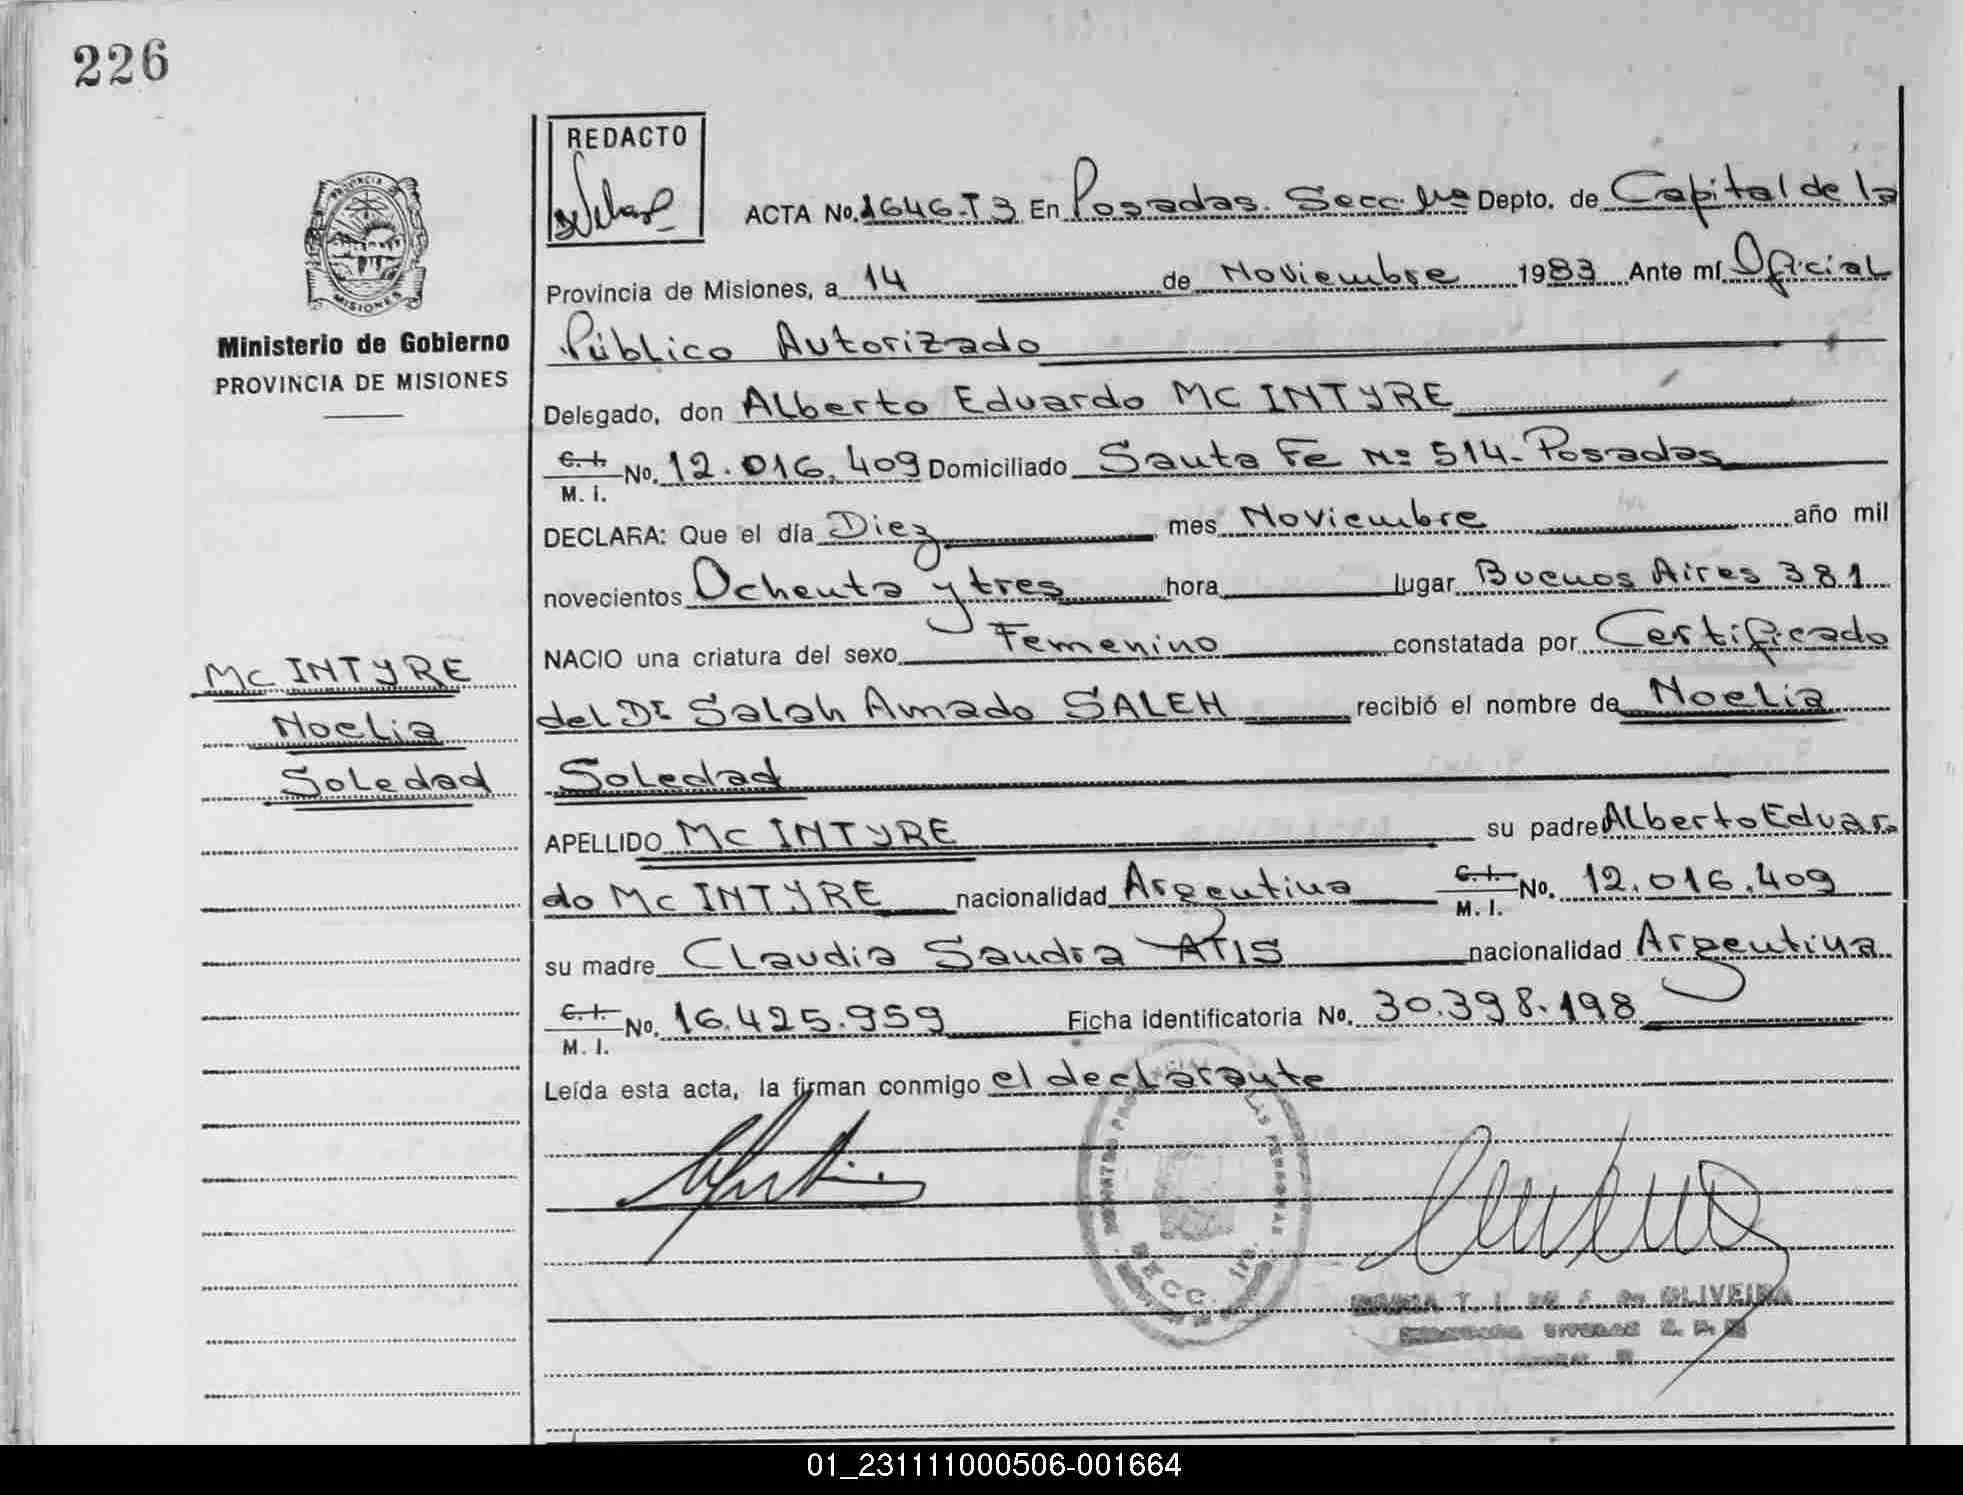 226
REDACTO
ACTA No. 1646-T3 En Posadas. Secc. 1ra Depto. de Capital de la
Provincia de Misiones, a 14 de Noviembre 1983 Ante mí Oficial
Público Autorizado
Ministerio de Gobierno
PROVINCIA DE MISIONES
Delegado, don Alberto Eduardo MC INTYRE
C. I. M. I. No. 12.016.409 Domiciliado Santa Fe Nº 514-Posadas
DECLARA: Que el día Diez mes Noviembre año mil
novecientos Ochenta y tres hora lugar Buenos Aires 381
NACIO una criatura del sexo Femenino constatada por Certificado
del Dr Salah Amado SALEH recibió el nombre de Noelia
Soledad
Mc INTYRE
Noelia
Soledad
APELLIDO Mc INTYRE su padre Alberto Eduar-
do Mc INTYRE nacionalidad Argentina C. I. M. I. No. 12.016.409
su madre Claudia Sandra ATIS nacionalidad Argentina
C. I. M. I. No. 16.425.959 Ficha identificatoria No. 30.398.198
Leída esta acta, la firman conmigo el declarante
SECC. 1ra.
OLIVEIRA
01_231111000506-001664